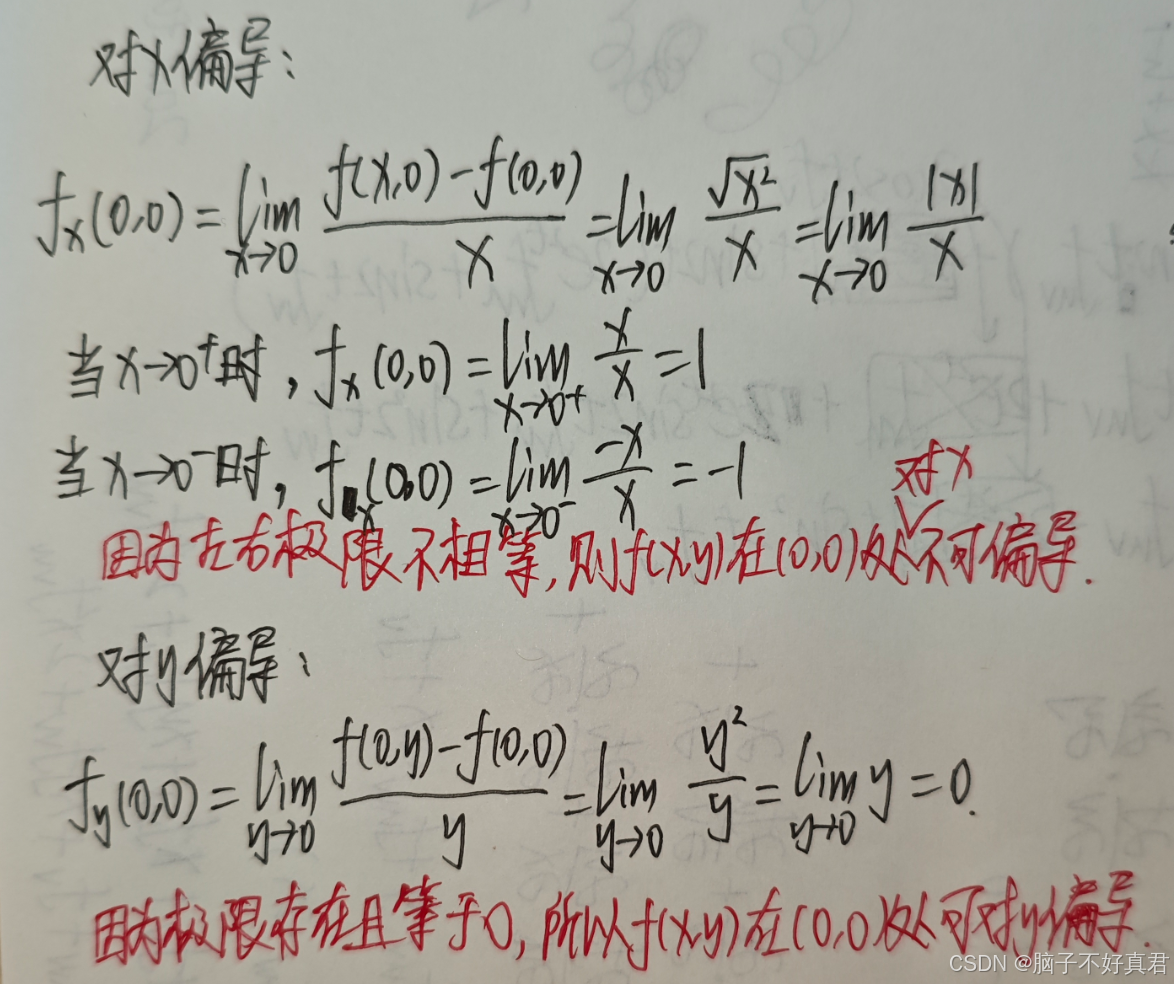 对x偏导:
f_x(0,0) = lim_{x→0} \frac{f(x,0)-f(0,0)}{x} = lim_{x→0} \frac{\sqrt{x^2}}{x} = lim_{x→0} \frac{|x|}{x}
当x→0⁺时, f_x(0,0) = lim_{x→0⁺} \frac{x}{x} = 1
当x→0⁻时, f_x(0,0) = lim_{x→0⁻} \frac{-x}{x} = -1
对x
因为左右极限不相等, 则f(x,y)在(0,0)处不可偏导.
对y偏导:
f_y(0,0) = lim_{y→0} \frac{f(0,y)-f(0,0)}{y} = lim_{y→0} \frac{y^2}{y} = lim_{y→0} y = 0.
因为极限存在且等于0, 所以f(x,y)在(0,0)处可对y偏导.
CSDN @脑子不好真君